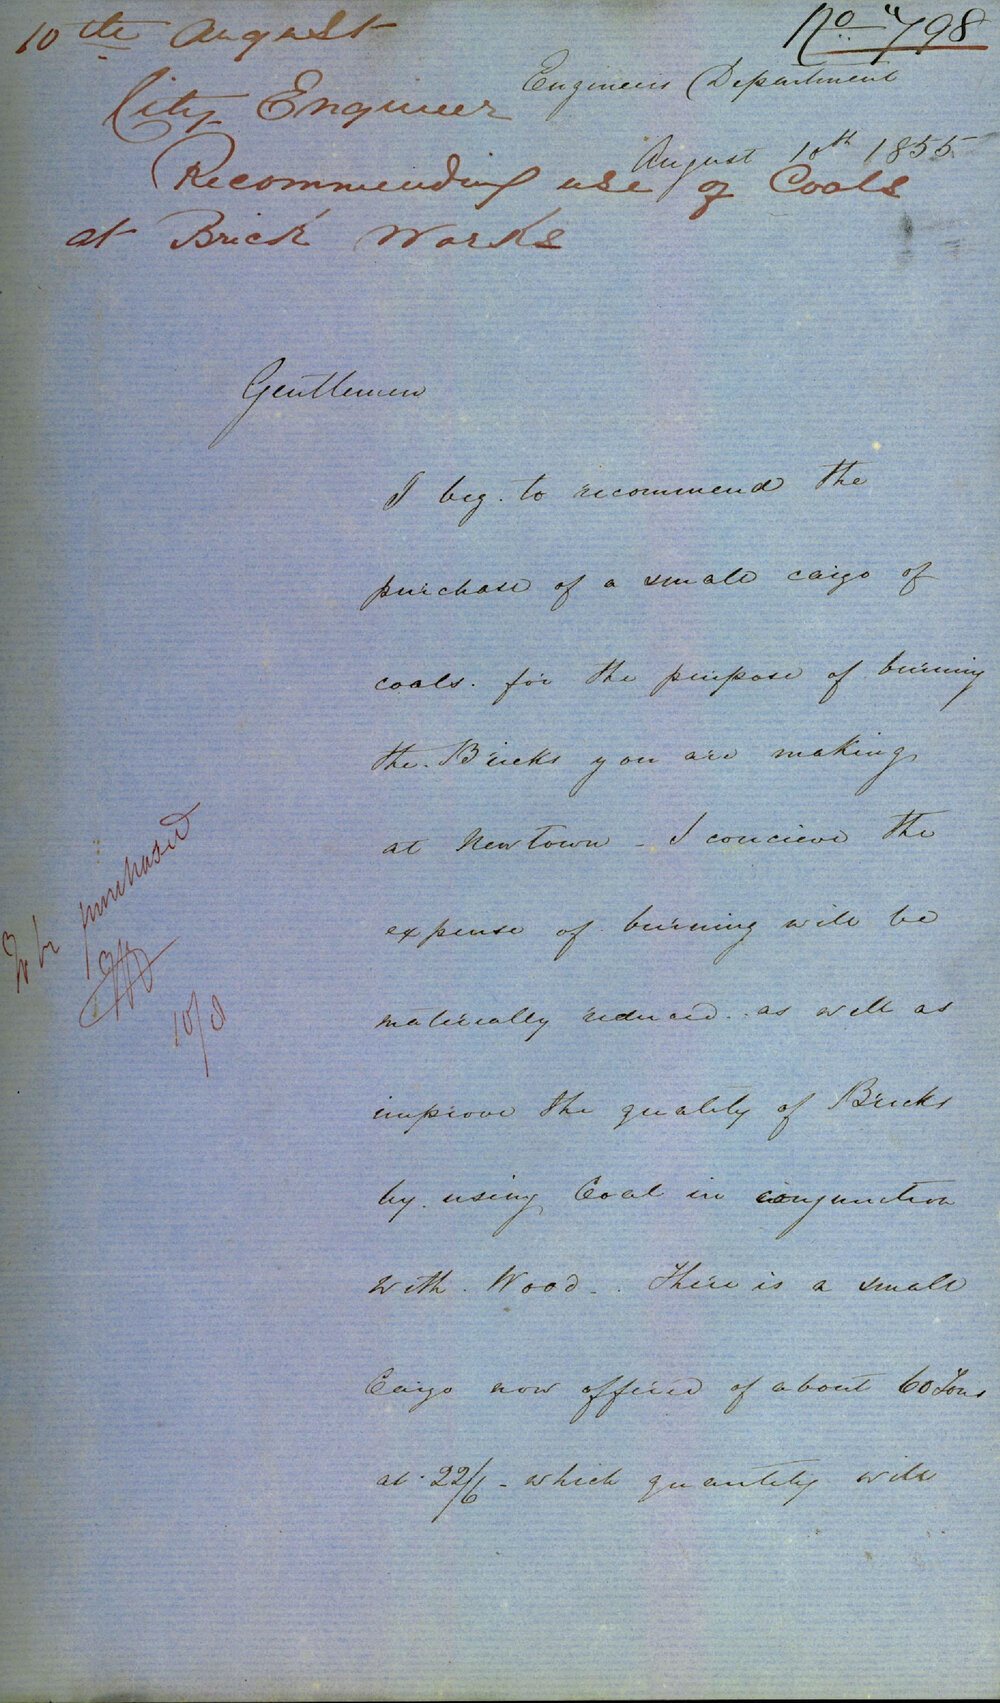 10th August
No 798
City Engineer
Engineers Department
August 10th 1855
Recommending use of Coals
at Brick Works
Gentlemen
I beg to recommend the
purchase of a small cargo of
coals. for the purpose of burning
the Bricks you are making
at Newtown - I concieve the
expense of burning will be
materially reduced.. as well as
improve the quality of Bricks
by using Coal in conjunction
with Wood - . There is a small
Cargo now offered of about 60 Tons
at 22/6 - which quantity will
To be purchased
10/8